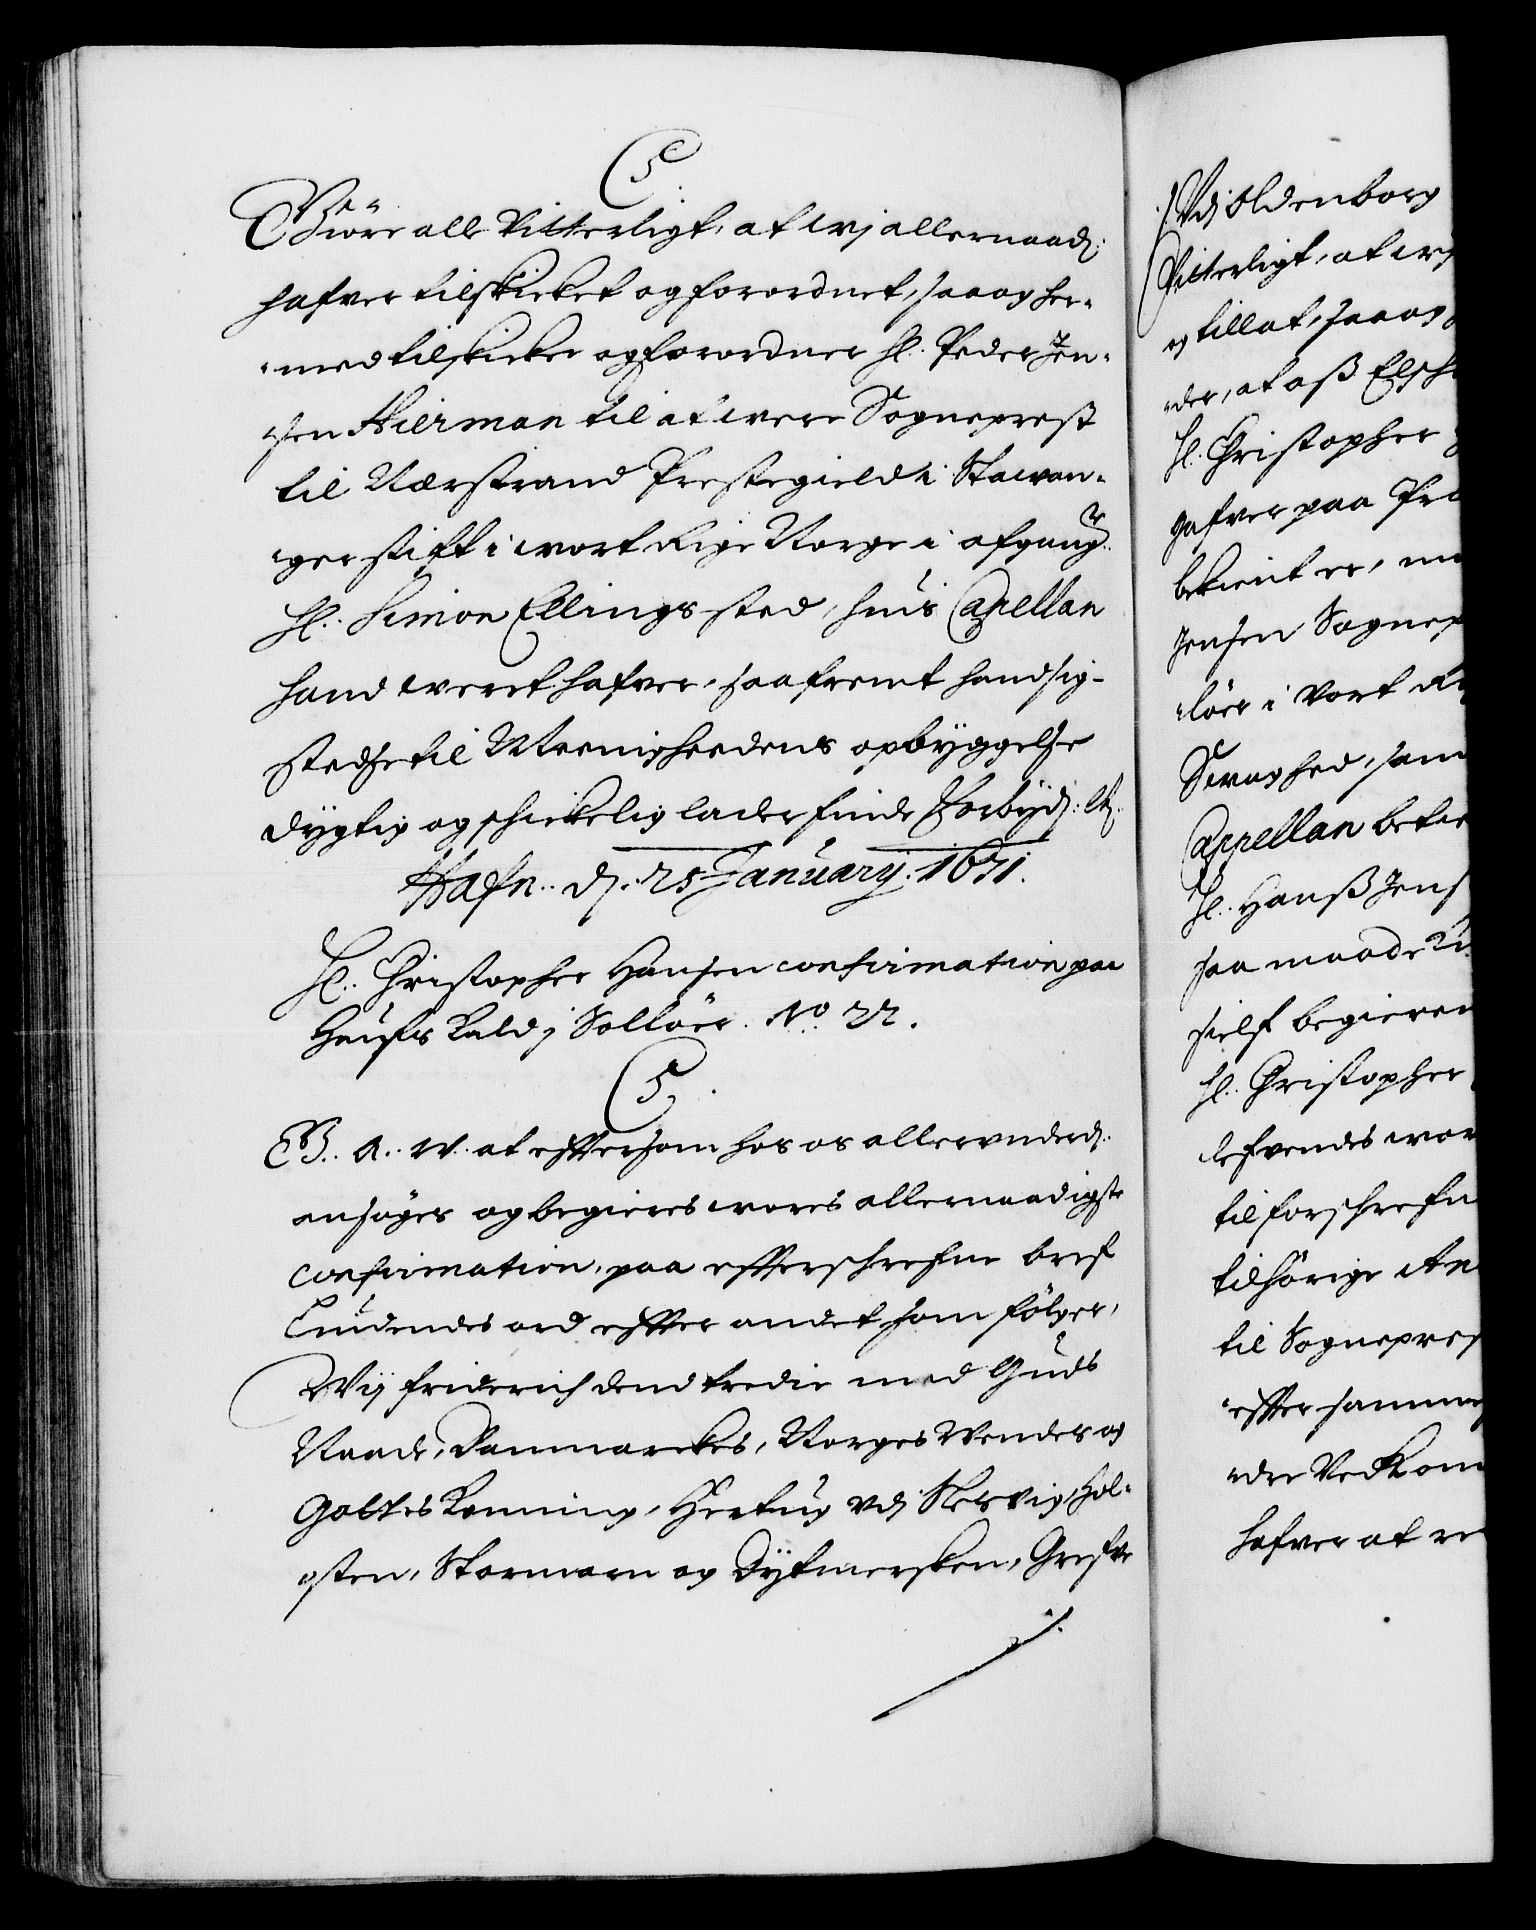 C5
Giöre alle Vitterligt, at wj allernaad:
hafver tilskicket og forordnet, saa og her-
med tilskicker og forordner Hl. Peder Jen-
sen Hierman til at were Sogneprest
til Nærstrand Prestegield i Stavan-
ger stift i wort Rige Norge i afgang.
Hl. Simon Ellings sted, huis Capellan
hand weret hafver, saafremt hand sig
stedse til Meenighedens opbyggelse
dygtig og schickelig lader finde Forbyd: etc.
Hafn. d. 25 January. 1671.
Hl. Christopher Hansen confirmation paa
Hansis Kald j Solløer. No. 22.
C5.
G. A. W. at effterson hos os allerunderd.
ansøges og begieres wores allernaadigste
Confirmation, paa effterschrefne bref
Liudendes ord effter andet som følger,
Wij friderich dend tredie med Guds
Naade, Danmarckes, Norges Wendes og
Gottes Konning, Hertug udj Slesvig, Hol-
sten, Stormarn og Dytmersken, Grefve
./.
Udj Oldenborg
Vitterligt, at wj
og tillat, saa og
der, at os Elsk
Hl. Christopher
hafver paa Pr
bekient er, m
Jensen Sognep
løer i Vort Ri
Svaghed, som
Cappellan bet
Hl. Hans Jens
saa maade
sielf begieren
Hl. Christopher
lefvendes wor
til forschrefn
tilhørige An
til Sognepres
effter samme
dre Vedkom
hafver at re